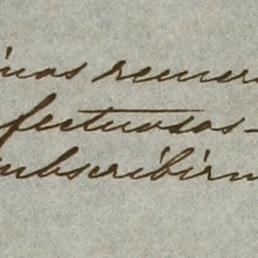 inos recuer
fectuosos-
ubscribirm